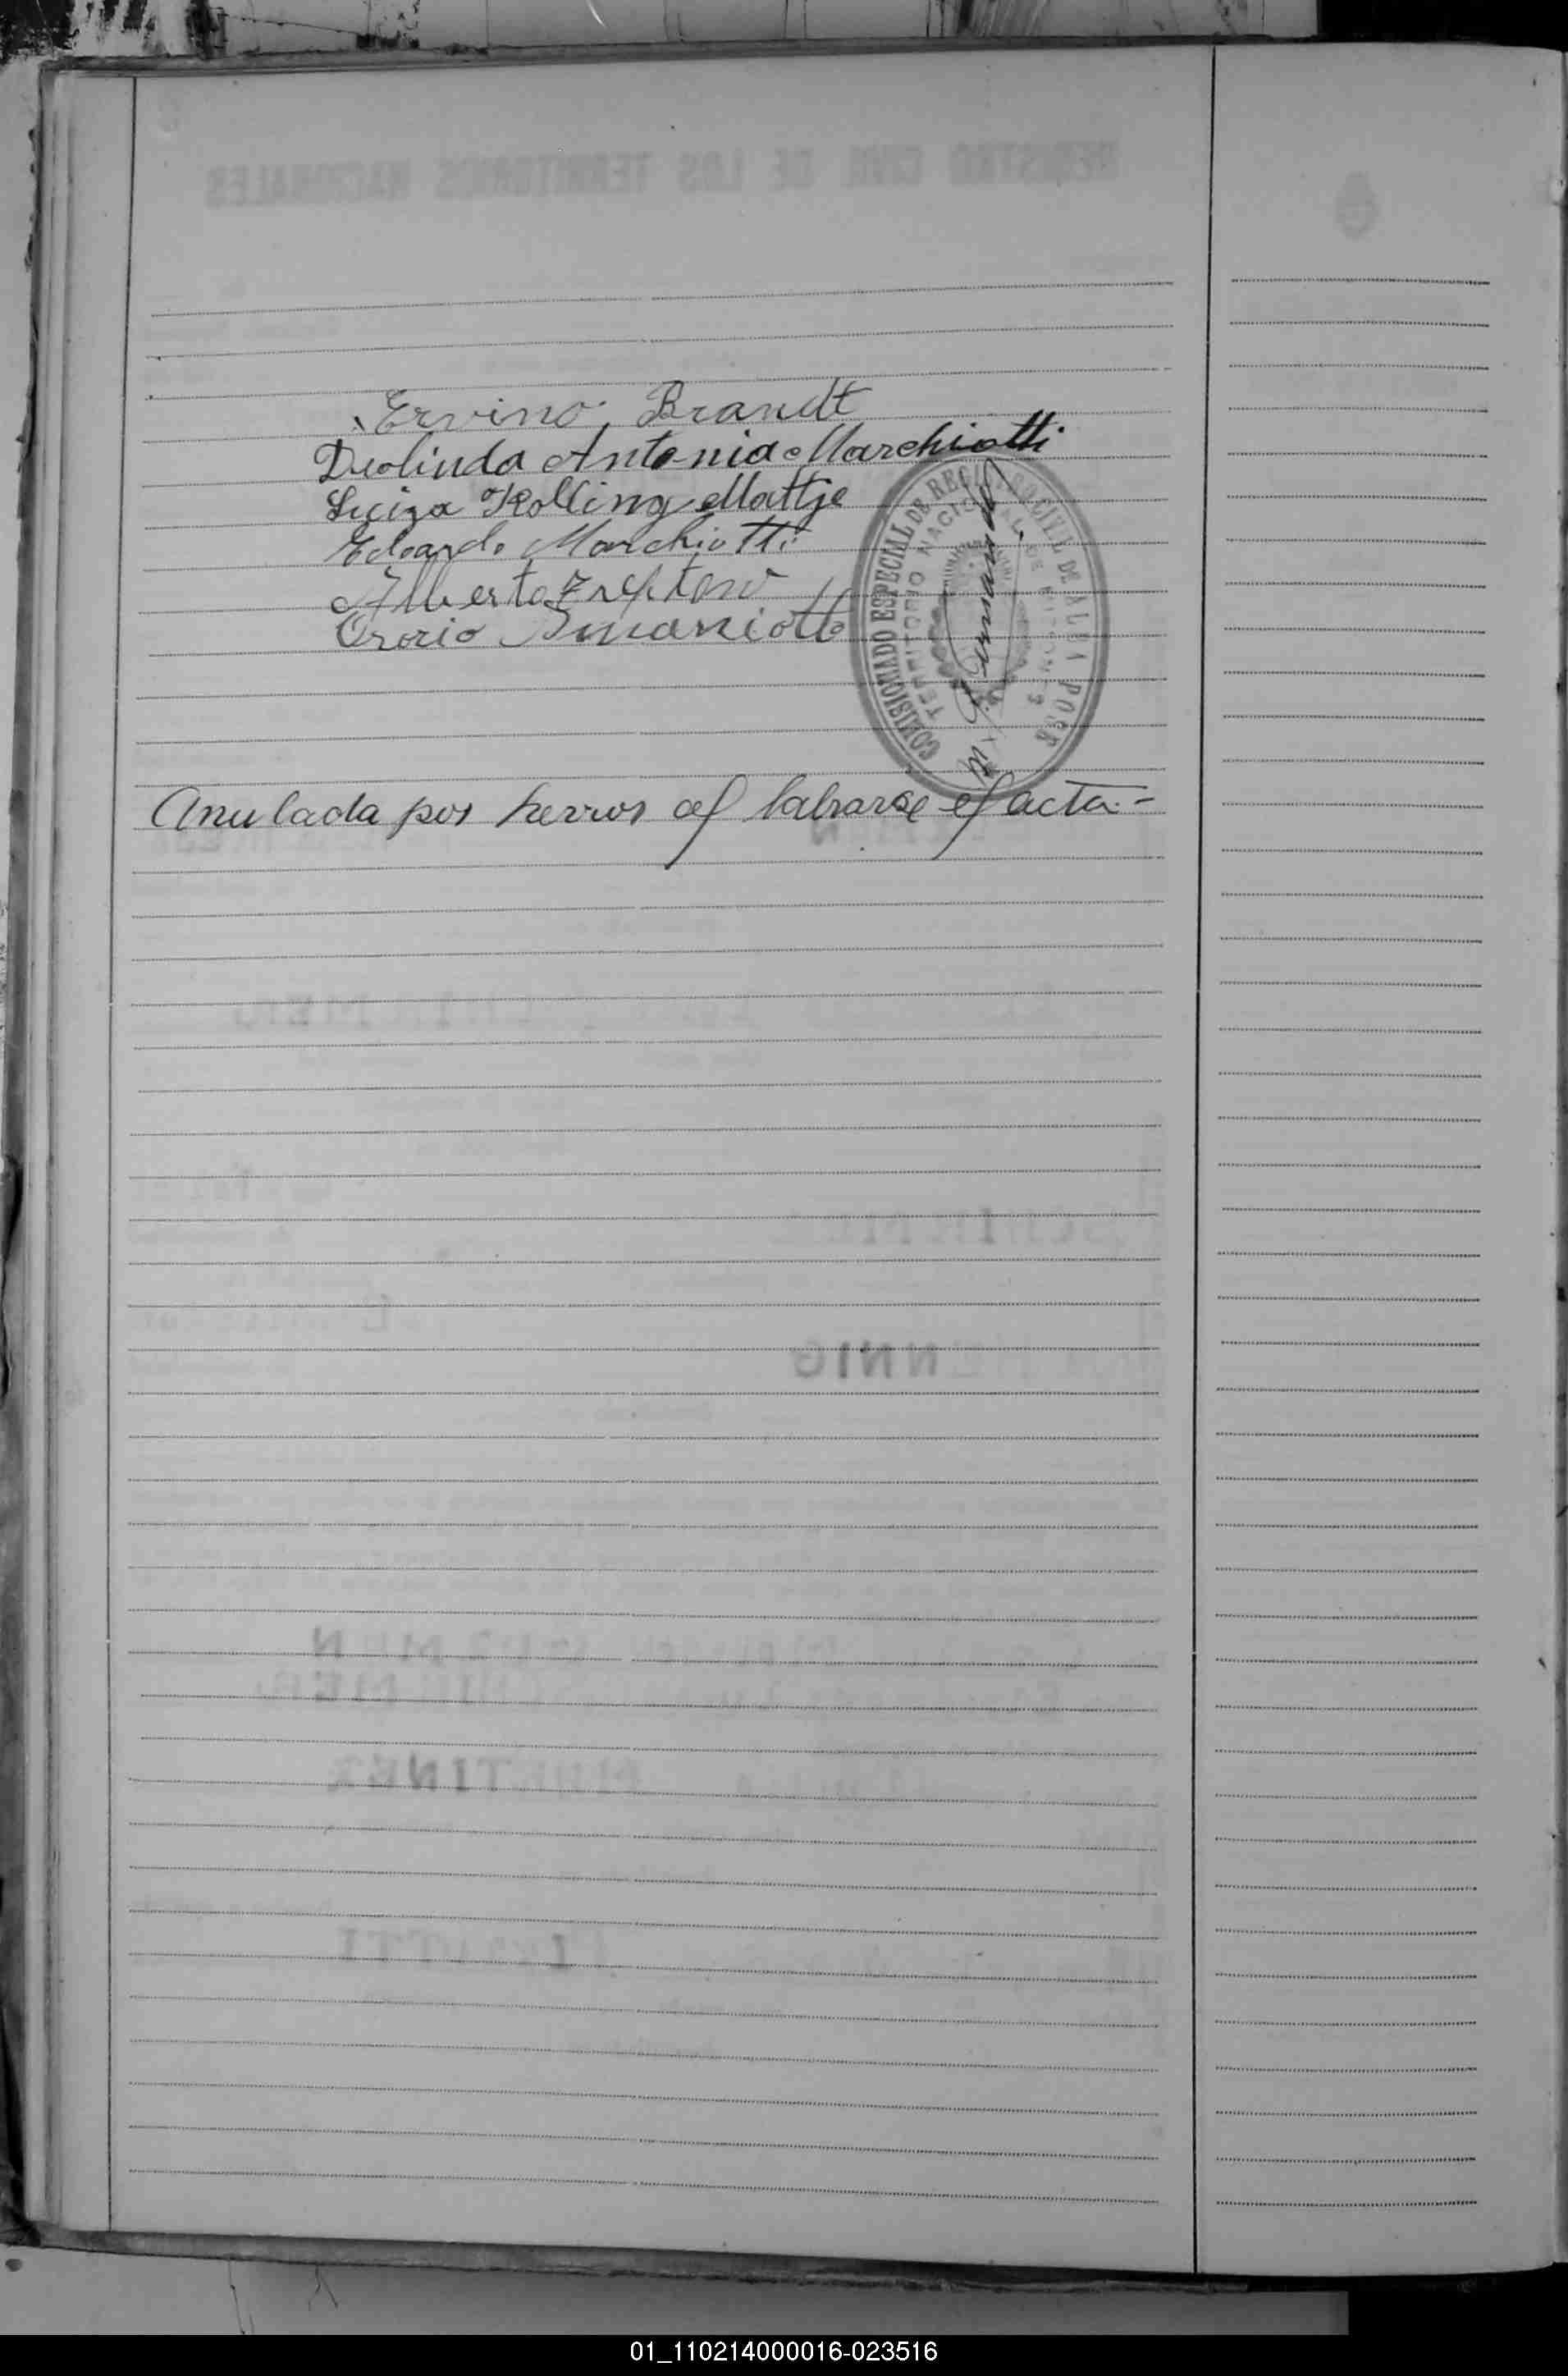 Ervino Brandt
Deolinda Antonia Marchiotti
Luiza Kolling Mattje
Edoardo Marchiotti
Alberto
Ororio Smaniotto
COMISIONADO ESPECIAL DE REGISTRO CIVIL DE ALBA POSSE
TERRITORIO NACIONAL DE MISIONES
Anulada por herros al labrarse el acta.-
01_110214000016-023516